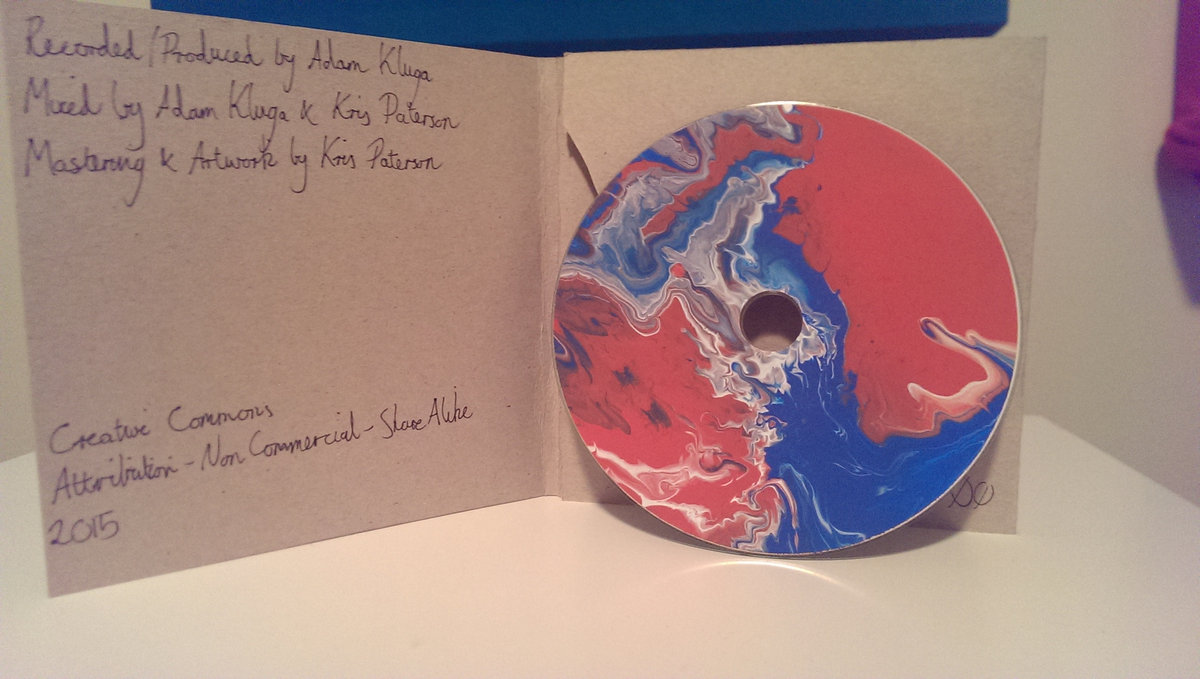 Recorded/Produced by Adam Kluga
Mixed by Adam Kluga & Kris Paterson
Mastering & Artwork by Kris Paterson
Creative Commons
Attribution - Non Commercial - Share Alike
2015